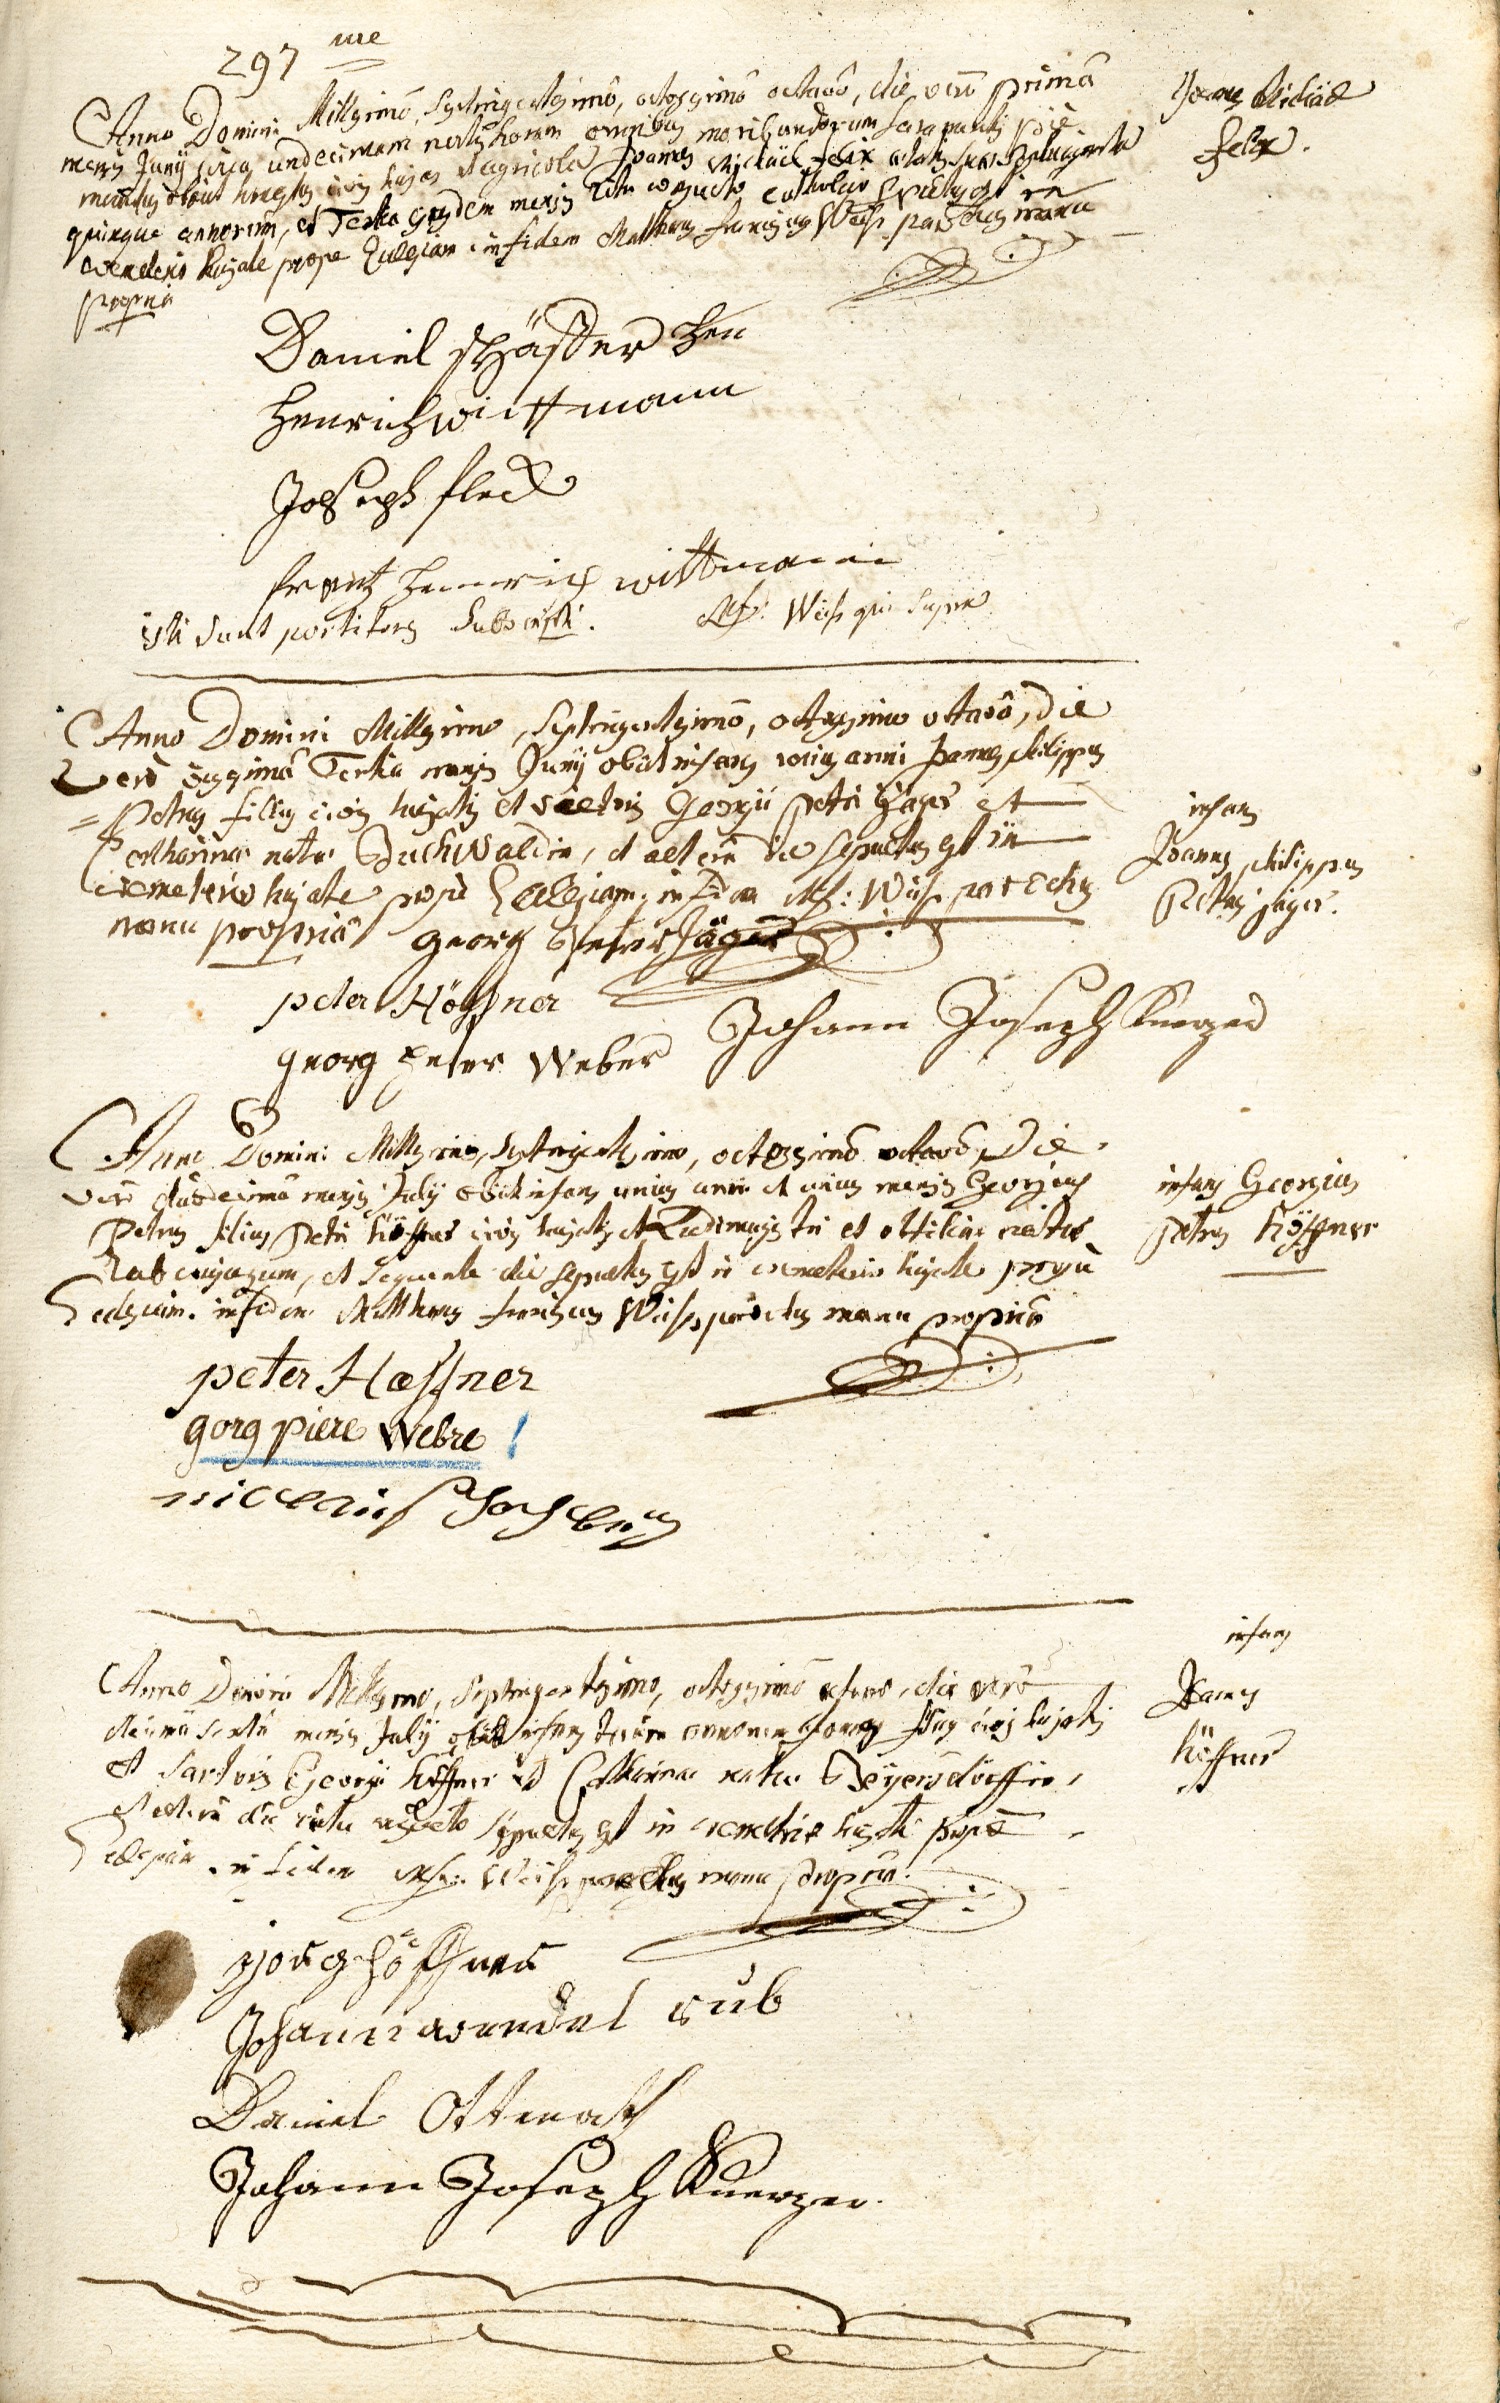 297 me
Anno Domini Millesimo, Septingentesimo, octogesimo octavo, die vero prima
mensis Junÿ circa undecimam noctis horam omnibus moribundorum Sacramentis rite
munitus obiit honestus civis hujas Agricola Joannes Michäel Felix ætatis suæ Septuaginta
quinque annorum, et Tertia ejusdem mensis ritu consueto catholico Sepultus est in
cemeterio hujate prope Ecclesiam in fidem Mathæus Franciscus Weiss parochus manu
propria
Joannes Michäel
Felix.
Daniel schäffer
Henrich wittmann
Joseph fleck
frantz Hennrich wittmann
isti sunt portitores subscripti. Mf: Weiss qui supra
Anno Domini Millesimo, Septingentesimo, octogesimo octavo, die
vero vigesima Tertia mensis Junÿ obiit infans unius anni Joannes Philippus
= Petrus filius civis hujatis et Georgii Petri Jäger et
Catharinæ natæ Buchwaldin, et altera die sepultus est in
cœmeterio hujate prope Ecclesiam, in fidem Mf: Weiss parochus
manu propria
infans
Joannes Philippus
Petrus Jäger.
georg Peter Jäger
peter Höffner
Johann Joseph
georg Peter Weber
Anno Domini Millesimo, Septingentesimo, octogesimo octavo, Die
vero duodecima mensis Julÿ obiit infans unius anni et unius mensis Georgius
Petrus filius Petri Höffner civis hujatis et Ludimagistri et ottiliæ natæ
conjugum, et sequente die sepultus est in cœmeterio hujate prope
Ecclesiam. in fidem Matthæus Franciscus Weiss parochus manu propria
infans Georgius
Petrus Höffner
peter Hæffner
gorg piere Webre !
Anno Domini Millesimo, Septingentesimo, octogesimo octavo, die vero
decima sexta mensis Julÿ obiit infans trium annorum Joannes filius civis hujatis
et Sartoris Georgii Höffner et Catharinæ natæ Beÿersdörffin,
et altera die ritu consueto sepultus est in cœmeterio hujate prope
Ecclesiam. in fidem Mf: Weiss parochus manu propria.
infans
Joannes
Höffner
Jörg Höffner
Johann wendel
Daniel Ottenath
Johann Joseph